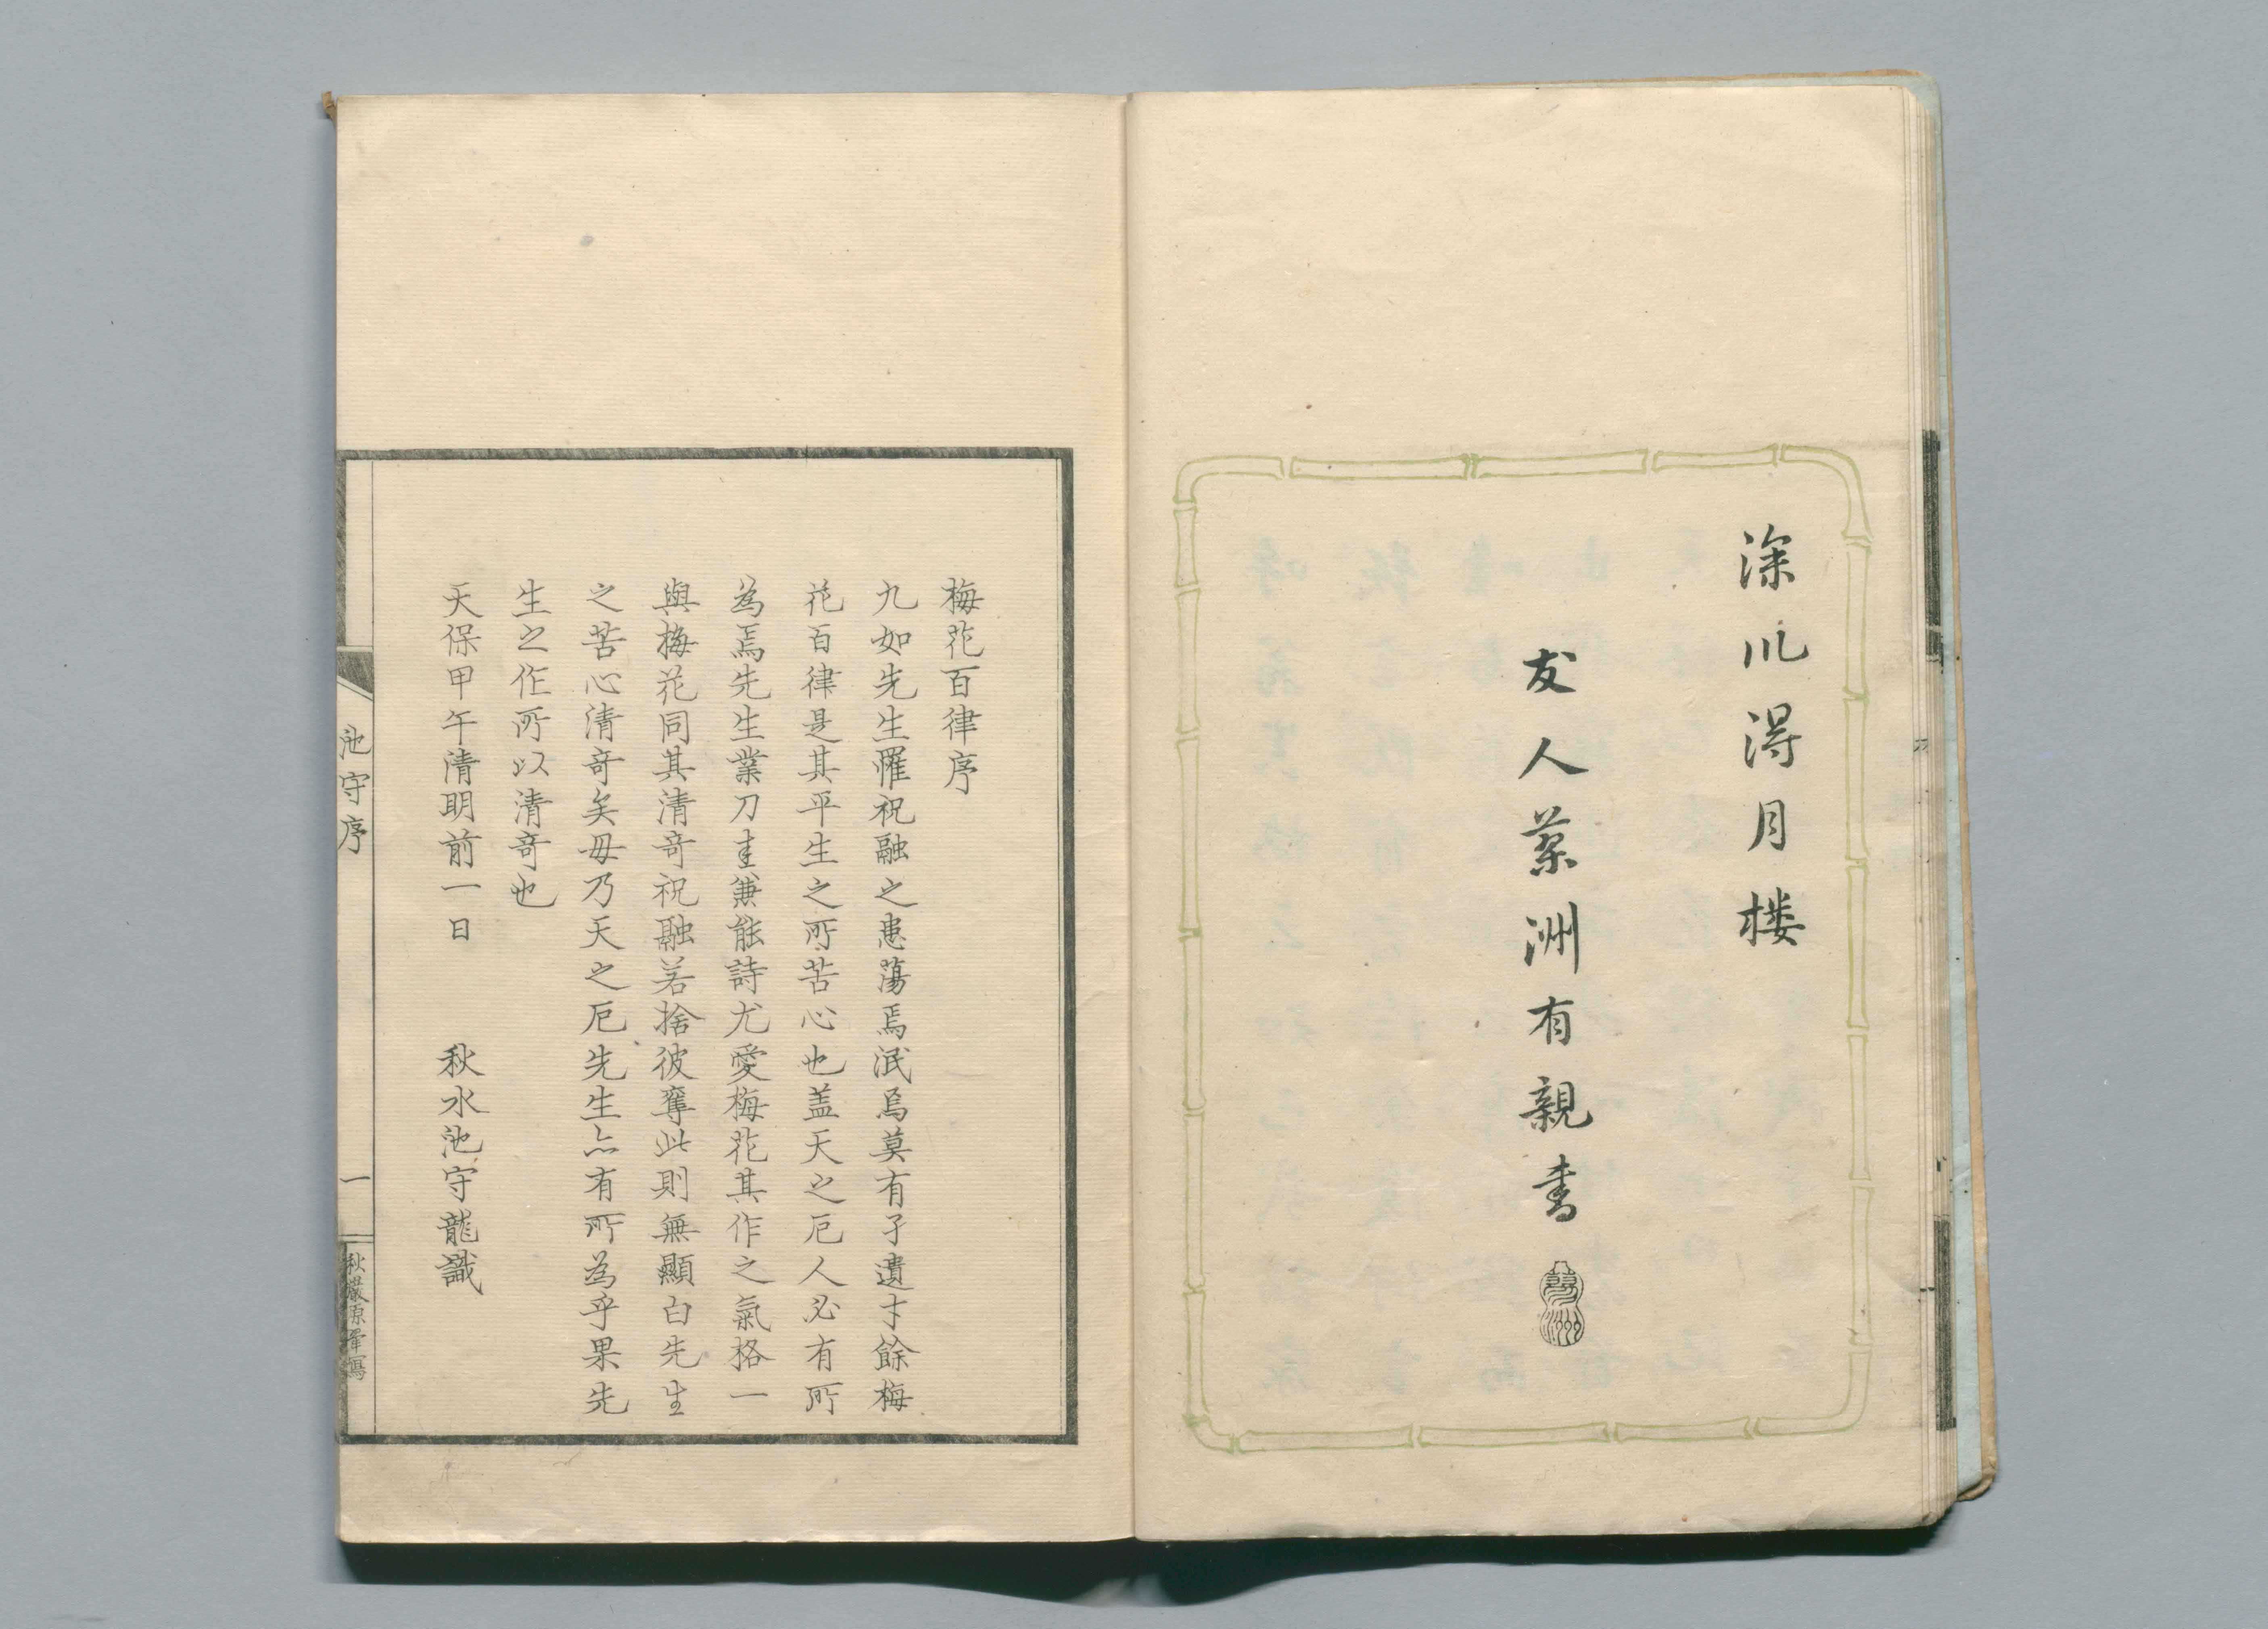 深川得月楼
友人蘂洲有親書
梅花百律序
九如先生罹祝融之患蕩焉泯焉莫有孑遺才餘梅
花百律是其平生之所苦心也盖天之厄人必有所
為焉先生業刀圭兼能詩尤愛梅花其作之氣格一
與梅花同其清奇祝融若捨彼奪此則無顯白先生
之苦心清奇矣毋乃天之厄先生亦有所為乎果先
生之作所以清奇也
天保甲午清明前一日　秋水池守龍識
池守序
一
秋巖原翬寫